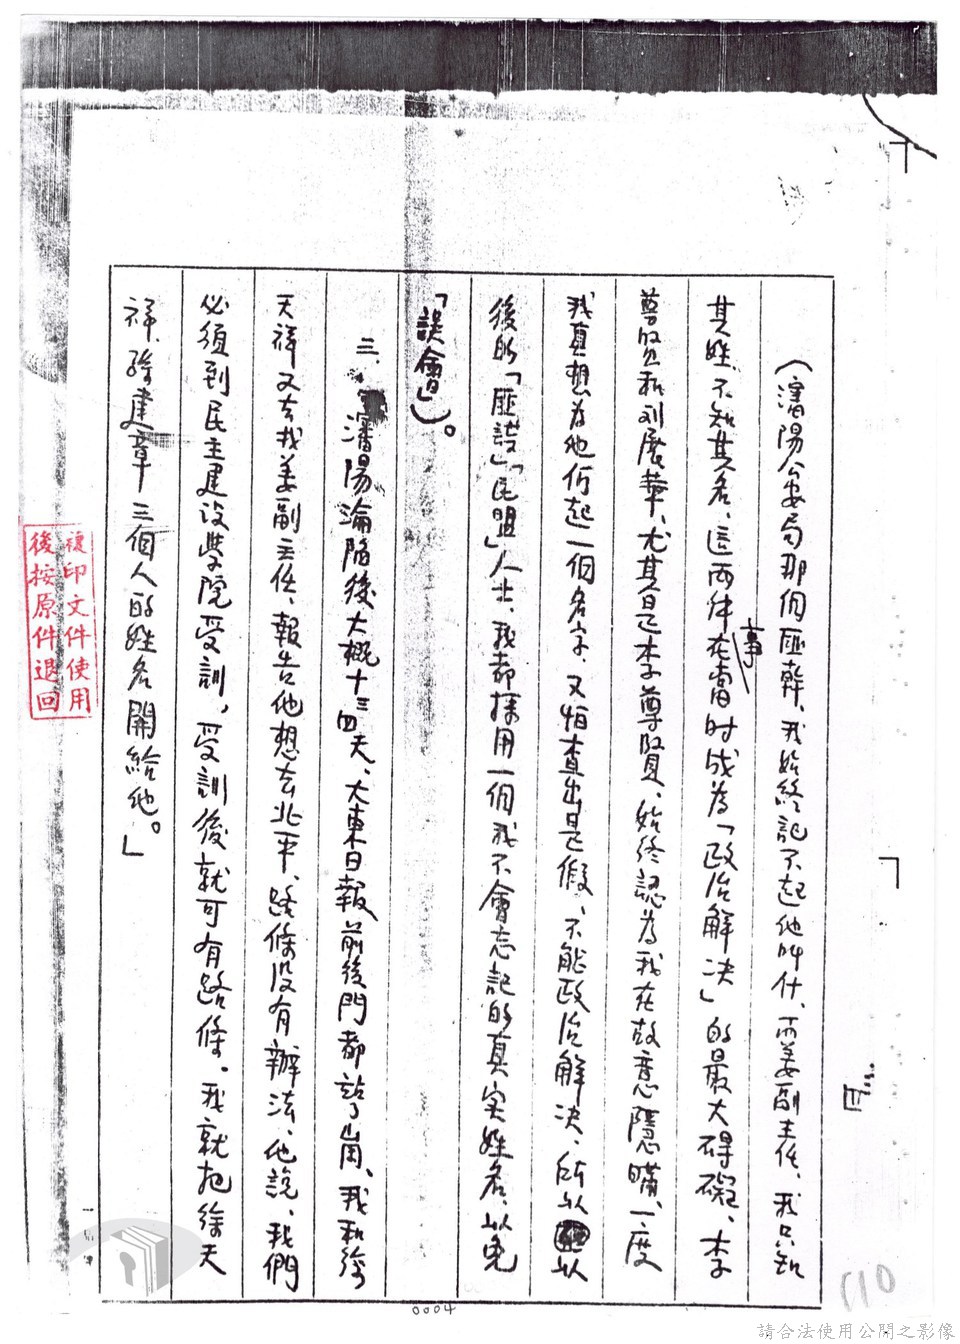 （瀋陽公安局那個匪幹、我始終記不起他叫什、而姜副主任、我只知
其姓不知其名、這兩件事在當时成為「政治解决」的最大碍礙、李
尊贤和刘展華、尤其是李尊賢、始终認為我在故意隱瞞、一度
我真想為他们起一個名字、又怕查出是假、不能政治解决、所以以
後的「匪諜」「民盟」人士、我都採用一個我不會忘記的真实姓名、以免
「誤會」）。
三、瀋陽淪陷後大概十三四天、大東日報前後門都站了崗、我和徐
天祥又去找姜副主任、報告他想去北平、路條没有辦法、他說、我們
必須到民主建设學院受訓，受訓後就可有路條。我就把徐天
祥、 建章三個人的姓名開給他。」
複印文件使用
後按原件退回
四
110
0004
請合法使用公開之影像